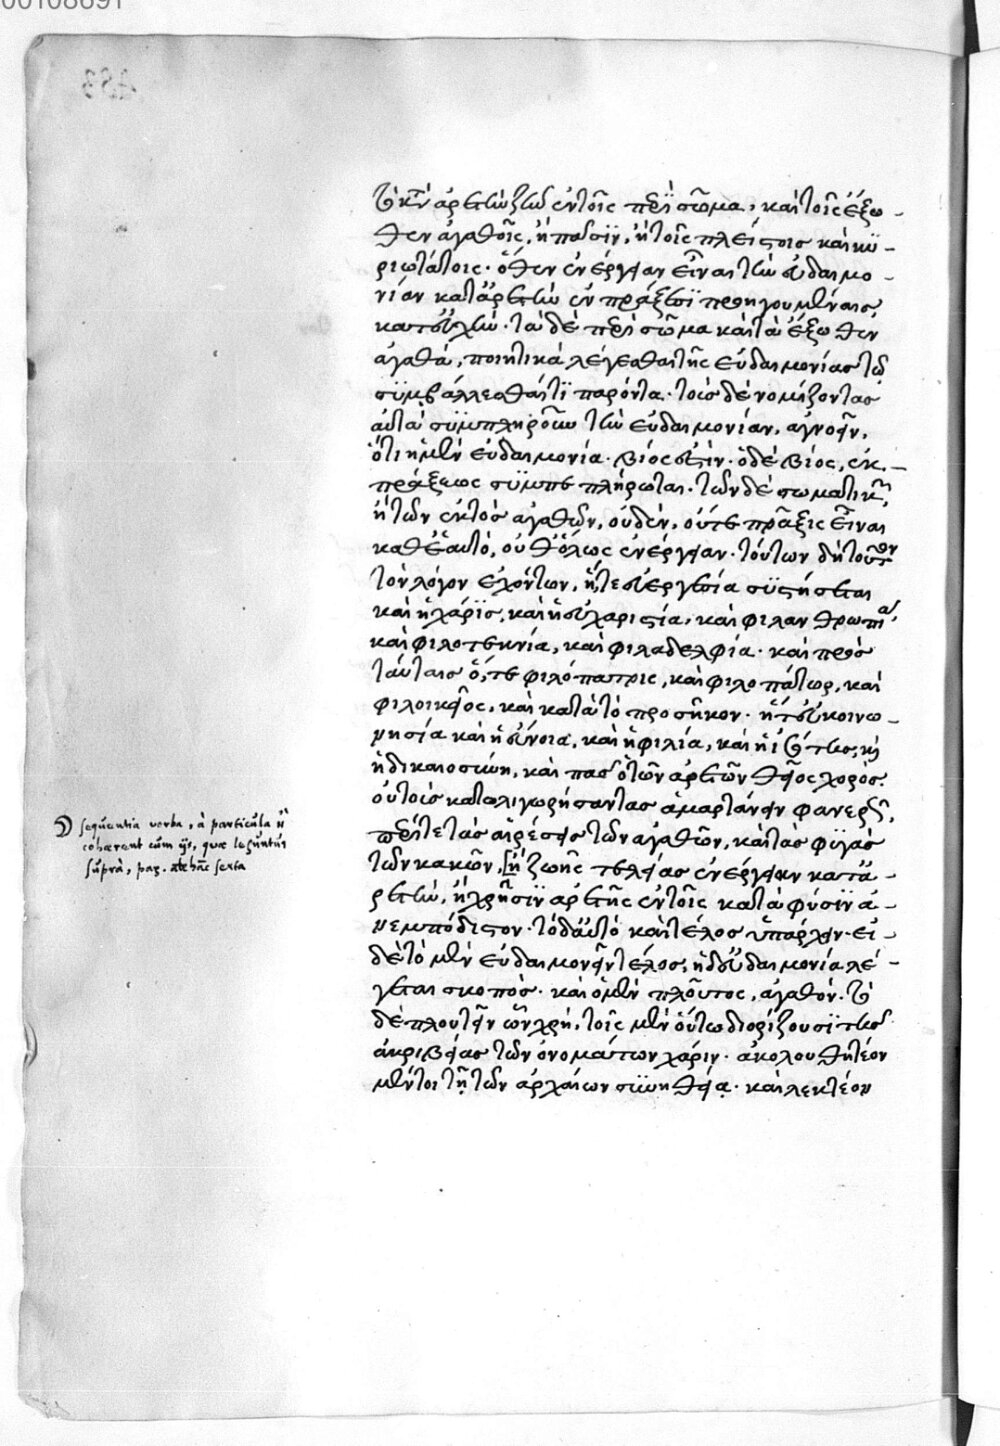 00108691
τὸ κατ' ἀρετὴν ζῆν ἐν τοῖς περὶ σῶμα, καὶ τοῖς ἔξω-
θεν ἀγαθοῖς, ἢ πᾶσιν, ἢ τοῖς πλείστοις καὶ κυ-
ριωτάτοις· ὅθεν ἐνέργειαν εἶναι τὴν εὐδαιμο-
νίαν κατ' ἀρετὴν ἐν πράξεσι προηγουμέναις
κατ' εὐχήν· τὰ δὲ περὶ σῶμα καὶ τὰ ἔξωθεν
ἀγαθά, ποιητικὰ λέγεσθαι τῆς εὐδαιμονίας τῷ
συμβάλλεσθαί τι παρόντα· τοὺς δὲ νομίζοντας
αὐτὰ συμπληροῦν τὴν εὐδαιμονίαν, ἀγνοεῖν,
ὅτι ἡ μὲν εὐδαιμονία· βίος ἐστίν· ὁ δὲ βίος, ἐκ
πράξεως συμπεπλήρωται· τῶν δὲ σωματικῶν,
ἢ τῶν ἐκτὸς ἀγαθῶν, οὐδέν, οὔτε πρᾶξις εἶναι
καθ' ἑαυτό, οὔθ' ὅλως ἐνέργειαν· τούτων δὴ τοῦτον
τὸν λόγον ἐχόντων, ἥ τε εὐεργεσία συστήσεται
καὶ ἡ χάρις, καὶ ἡ εὐχαριστία, καὶ φιλανθρωπία,
καὶ φιλοτεκνία, καὶ φιλαδελφία· καὶ πρὸς
ταύταις ὅ, τε φιλόπατρις, καὶ φιλοπάτωρ, καὶ
φιλοικεῖος, καὶ κατὰ τὸ προσῆκον· ἥ τ' εὐκοινω-
νησία καὶ ἡ εὔνοια, καὶ ἡ φιλία, καὶ ἡ ἰσότης, καὶ
ἡ δικαιοσύνη, καὶ πᾶς ὁ τῶν ἀρετῶν θεῖος χορός·
οὓς τοὺς κατολιγωρήσαντας ἁμαρτάνειν φανερῶς,
περί τε τὰς αἱρέσεις τῶν ἀγαθῶν, καὶ τὰς φυγὰς
τῶν κακῶν, [ἢ ζωῆς τελείας ἐνέργειαν κατ' ἀ-
ρετὴν, ἢ χρῆσιν ἀρετῆς ἐν τοῖς κατὰ φύσιν ἀ-
νεμπόδιστον· τὸ δ' αὐτὸ καὶ τέλος ὑπάρχειν· εἰ
δὲ τὸ μὲν εὐδαιμονεῖν τέλος, ἡ δ' εὐδαιμονία λέ-
γεται σκοπός· καὶ ὁ μὲν πλοῦτος, ἀγαθόν· τὸ
δὲ πλουτεῖν ὧν χρή, τοῖς μὲν οὕτω διορίζουσι τῆς
ἀκριβείας τῶν ὀνομάτων χάριν· ἀκολουθητέον
μέντοι τῇ τῶν ἀρχαίων συνηθείᾳ· καὶ λεκτέον
sequentia verba, à particula ἢ
cohærent cum ijs, quæ leguntur
suprà, pag.